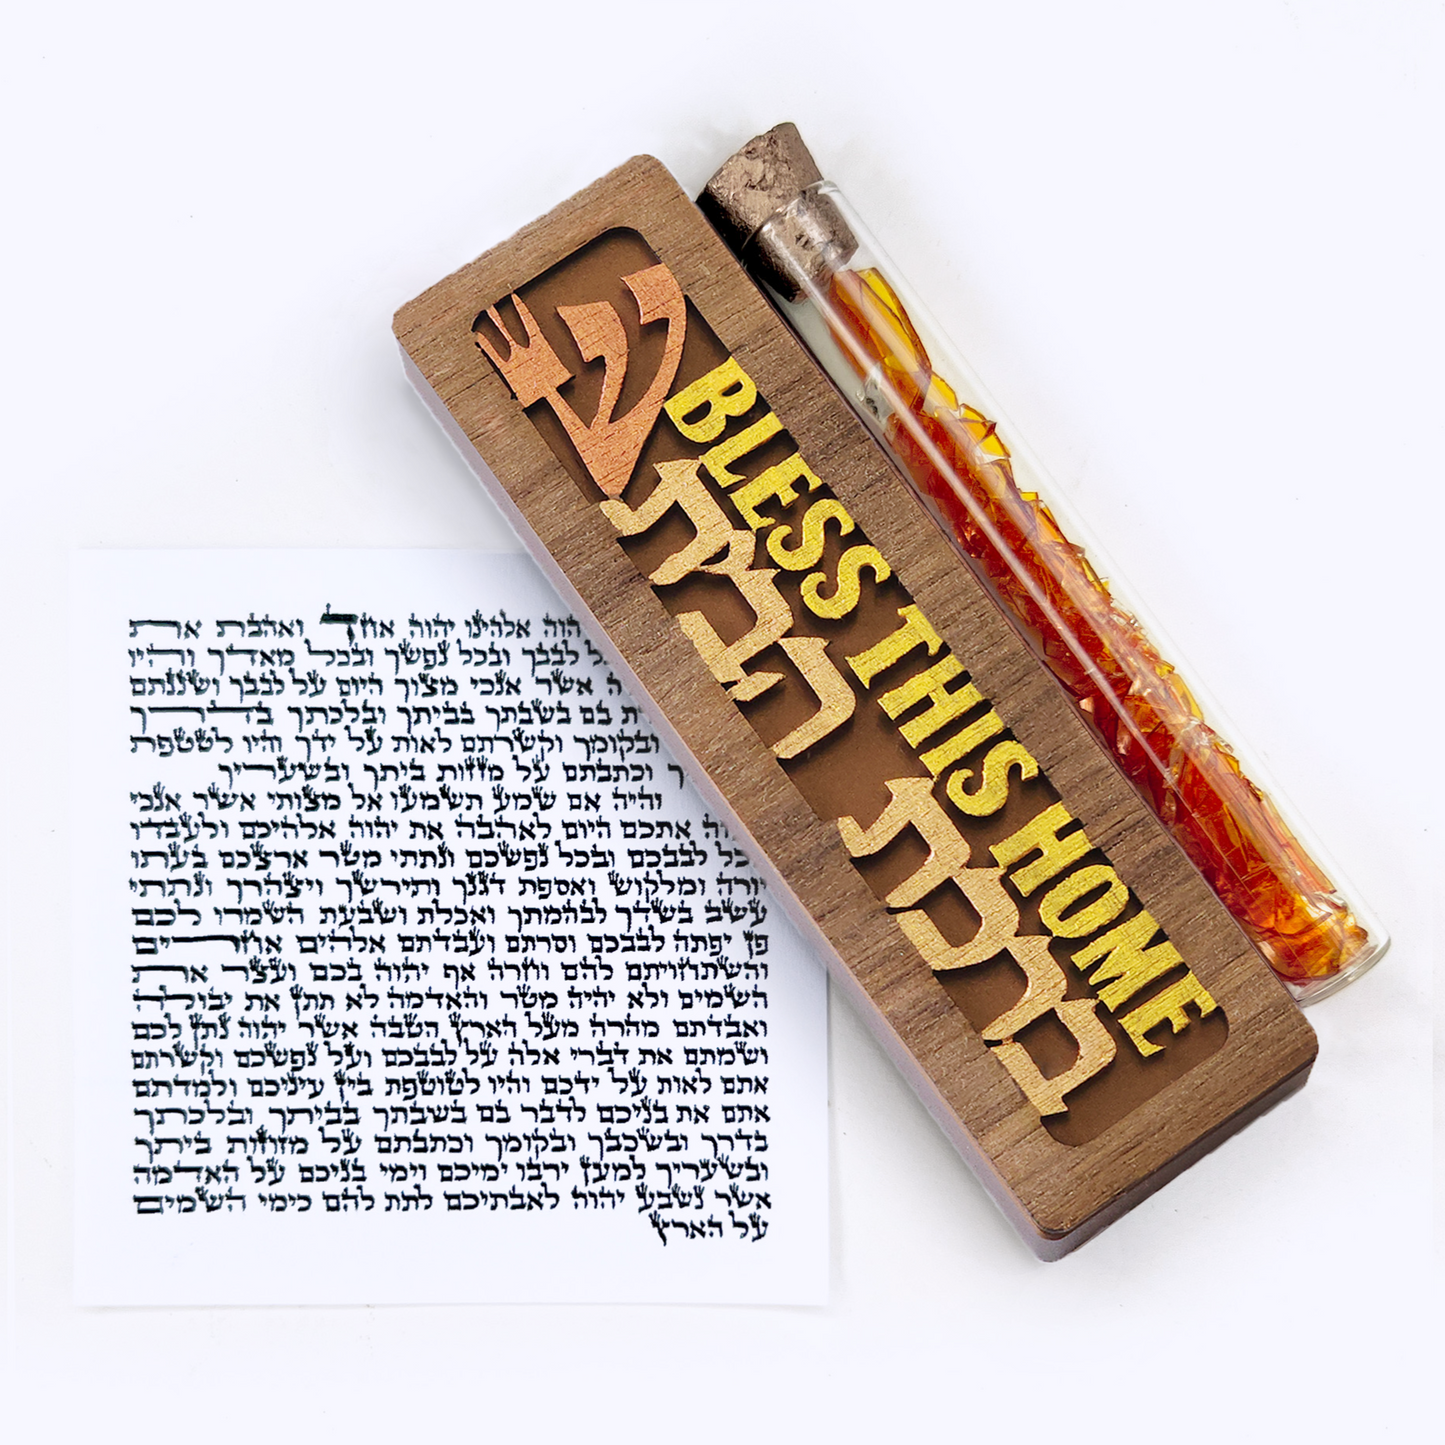 ש
BLESS THIS HOME
ברכת הבית
אלהינו יהוה אחד ואהבת את
לבבך ובכל נפשך ובכל מאדך והיו
אשר אנכי מצוך היום על לבבך ושננתם
בם בשבתך בביתך ובלכתך בדרך
ובקומך וקשרתם לאות על ידך והיו לטטפת
וכתבתם על מזזות ביתך ובשעריך
והיה אם שמע תשמעו אל מצותי אשר אנכי
אתכם היום לאהבה את יהוה אלהיכם ולעבדו
לבבכם ובכל נפשכם ונתתי מטר ארצכם בעתו
יורה ומלקוש ואספת דגנך ותירשך ויצהרך ונתתי
עשב בשדך לבהמתך ואכלת ושבעת השמרו לכם
פן יפתה לבבכם וסרתם ועבדתם אלהים אחרים
והשתחויתם להם וחרה אף יהוה בכם ועצר את
השמים ולא יהיה מטר והאדמה לא תתן את יבולה
ואבדתם מהרה מעל הארץ הטבה אשר יהוה נתן לכם
ושמתם את דברי אלה על לבבכם ועל נפשכם וקשרתם
אתם לאות על ידכם והיו לטוטפת בין עיניכם ולמדתם
אתם את בניכם לדבר בם בשבתך בביתך ובלכתך
בדרך ובשכבך ובקומך וכתבתם על מזוזות ביתך
ובשעריך למען ירבו ימיכם וימי בניכם על האדמה
אשר נשבע יהוה לאבתיכם לתת להם כימי השמים
על הארץ